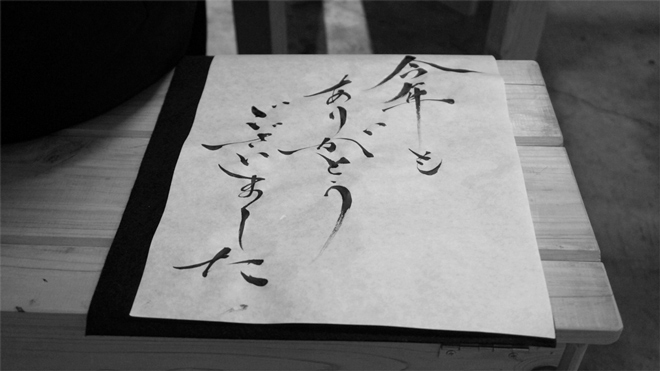 今年も
ありがとう
ございました